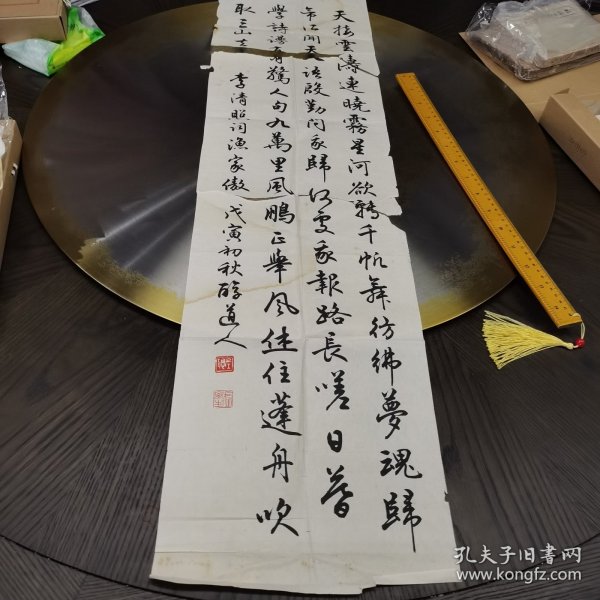 天接雲濤連曉霧星河欲轉千帆舞彷彿夢魂歸
帝所聞天語殷勤問我歸何處我報路長嗟日暮
學詩謾有驚人句九萬里風鵬正舉風休住蓬舟吹
取三山去 李清照詞漁家傲 戊寅初秋醇道人
孔夫子旧书网
www.kongfz.com